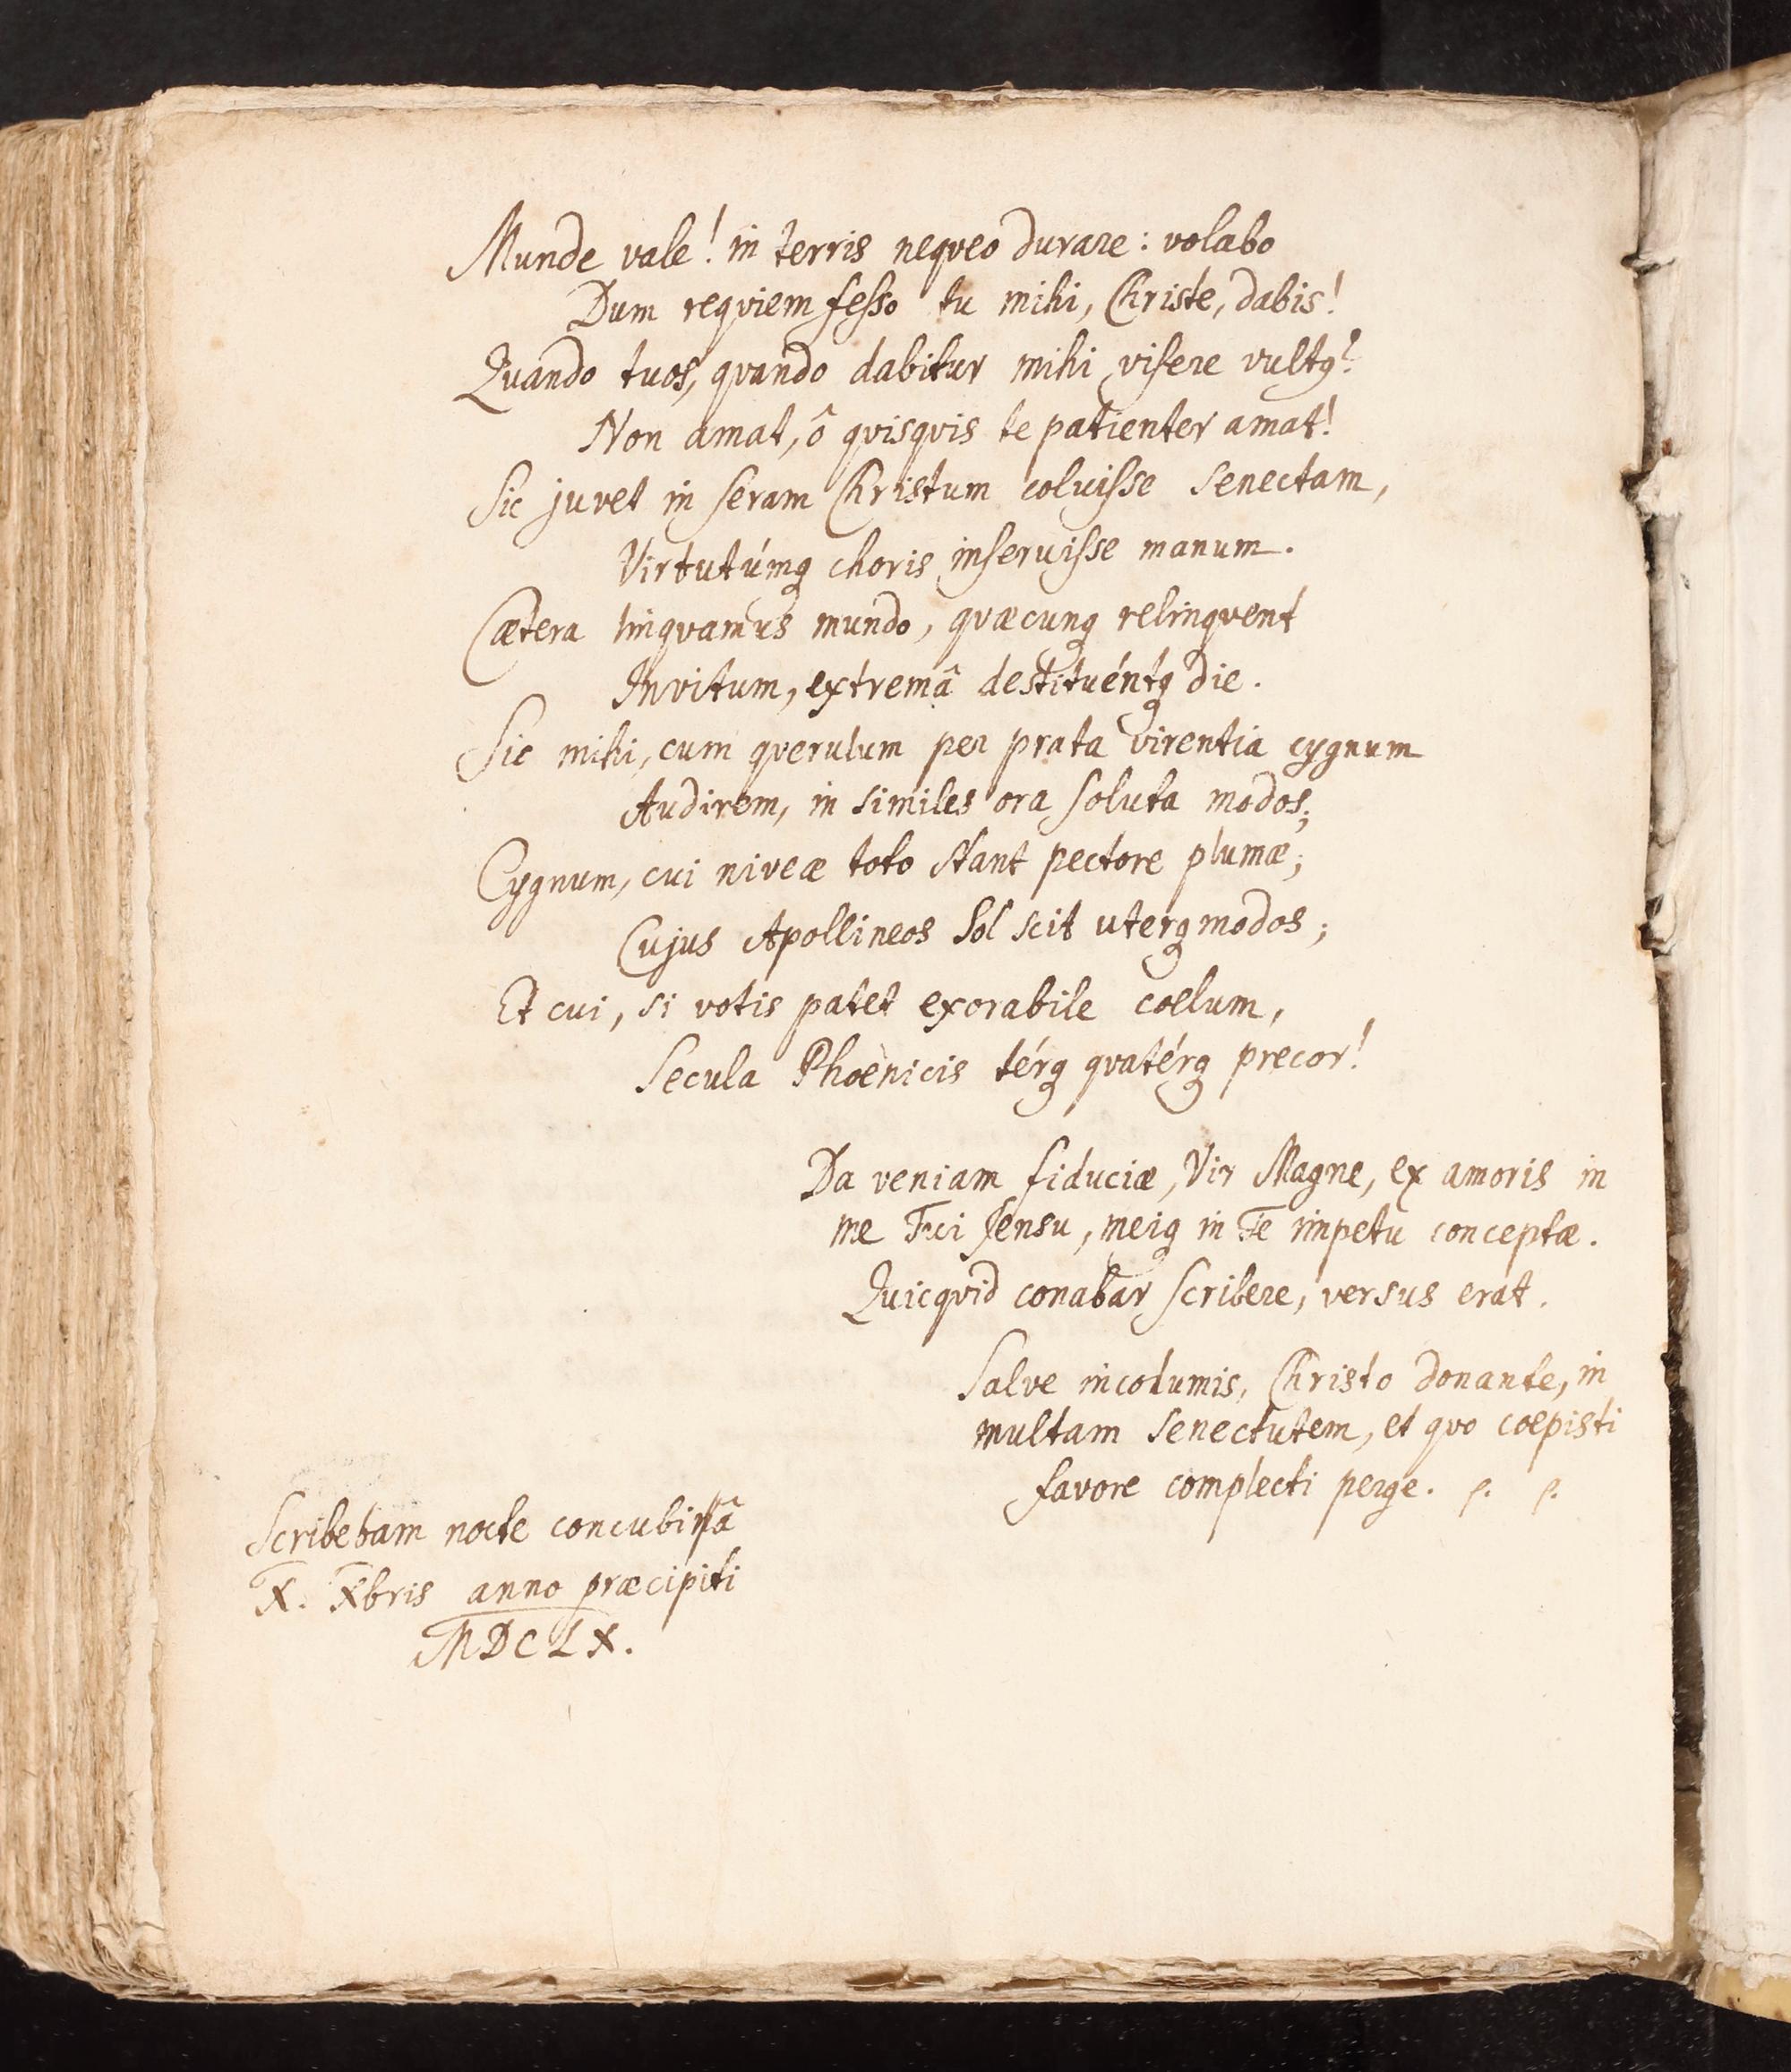 Munde vale! in terris neqveo durare: volabo
Dum reqviem feſso tu mihi, Christe, dabis!
Quando tuos, qvando dabitur mihi viſere vultꝰ?
Non amat, ô qvisqvis te patienter amat!
Sic juvet in ſeram Christum coluiſse senectam,
Virtutúmq́ choris inſeruiſse manum.
Cætera linqvamus mundo, qvæcunq́ relinqvent
Invitum, extremâ destituéntq́ die.
Sic mihi, cum qverulum per prata virentia cygnum
Audirem, in similes ora ſoluta modos;
Cygnum, cui niveæ toto stant pectore plumæ;
Cujus Apollineos Sol scit uterq́ modos;
Et cui, si votis patet exorabile coelum,
Secula Phoenicis térq́ qvatérq́ precor!
Da veniam fiduciæ, Vir Magne, ex amoris in
me Tui ſensu, meiq́ in Te impetu conceptæ.
Quicqvid conabar ſcribere, versus erat.
Salve incolumis, Christo donante, in
multam senectutem, et qvo coepisti
favore complecti perge. p. p.
Scribebam nocte concubiâ
X. Xbris anno præcipiti
MDCLX.